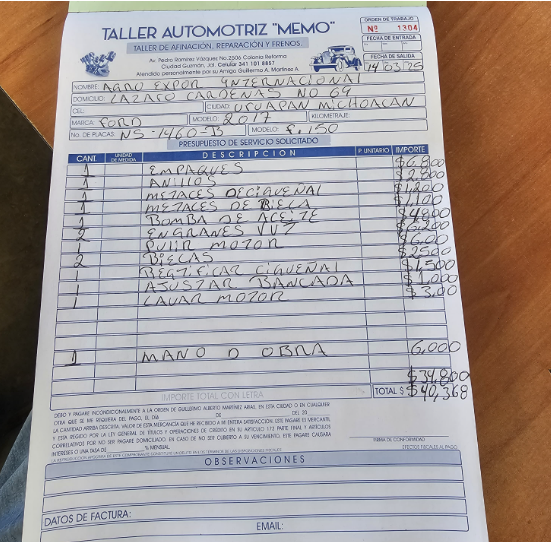 TALLER AUTOMOTRIZ "MEMO"
TALLER DE AFINACIÓN, REPARACIÓN Y FRENOS
Av. Pedro Ramírez Vázquez No.2506 Colonia Reforma
Ciudad Guzmán, Jal. Celular 341 101 6857
Atendido personalmente por su Amigo Guillermo A. Martínez A.
ORDEN DE TRABAJO
Nº 1304
FECHA DE ENTRADA
FECHA DE SALIDA
14/03/25
NOMBRE: AGRO EXPOR YNTERNACIONAL
DOMICILIO: LAZARO CARDENAS NO 69
CEL: CIUDAD: URUAPAN MICHOACAN
MARCA: FORD MODELO: 2017 KILOMETRAJE:
No. DE PLACAS: NS-1460-B MODELO: F.150
PRESUPUESTO DE SERVICIO SOLICITADO
CANT. UNIDAD DE MEDIDA DESCRIPCION P. UNITARIO IMPORTE
1 EMPAQUES $6,800
1 ANILLOS $2,800
1 METALES DECIGUEÑAL $1,200
1 METALES DE BIELA $1,100
1 BOMBA DE ACEITE $4,800
2 ENGRANES VVT $6,200
1 PULIR MOTOR $600
2 BIELAS $2500
1 RECTIFICAR CIGUEÑAL $1,500
1 AJUSTAR BANCADA $1,000
1 LAVAR MOTOR $300
1 MANO D OBRA 6,000
$34,800
IMPORTE TOTAL CON LETRA TOTAL $ $40,368
DEBO Y PAGARE INCONDICIONALMENTE A LA ORDEN DE GUILLERMO ALBERTO MARTINEZ ARIAS, EN ESTA CIUDAD O EN CUALQUIER
OTRA QUE SE ME REQUIERA DEL PAGO, EL DIA DE DEL 20
LA CANTIDAD ARRIBA DESCRITA, VALOR DE ESTA MERCANCIA QUE HE RECIBIDO A MI ENTERA SATISFACCION. ESTE PAGARE ES MERCANTIL
Y ESTA REGIDO POR LA LEY GENERAL DE TITULOS Y OPERACIONES DE CREDITO EN SU ARTICULO 173 PARTE FINAL Y ARTICULOS
CORRELATIVOS POR NO SER PAGARE DOMICILIADO. EN CASO DE NO SER CUBIERTO A SU VENCIMIENTO, ESTE PAGARE CAUSARA
INTERESES O UNA TASA DE % MENSUAL.
FIRMA DE CONFORMIDAD
EFECTOS FISCALES AL PAGO
OBSERVACIONES
DATOS DE FACTURA:
EMAIL: